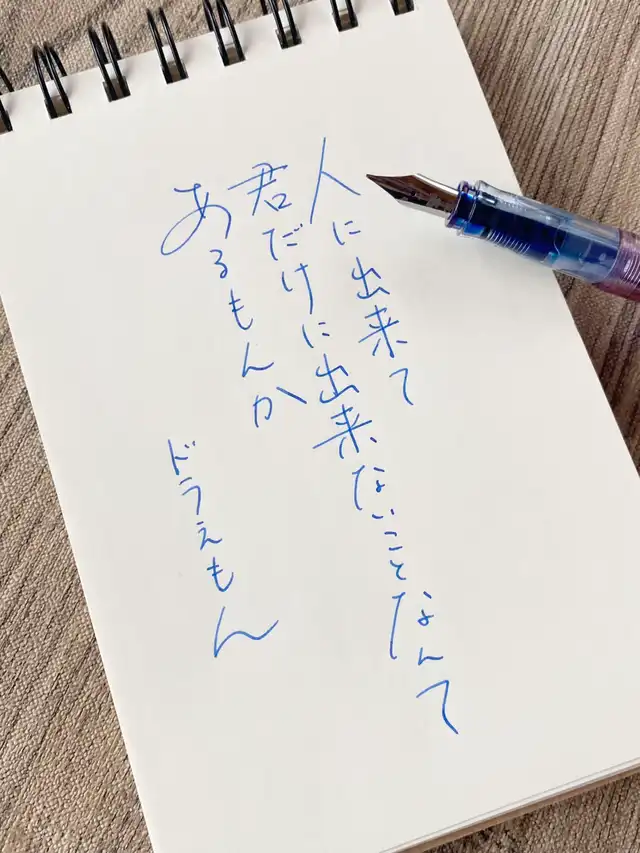 人に出来て
君だけに出来ないことなんて
あるもんか
ドラえもん